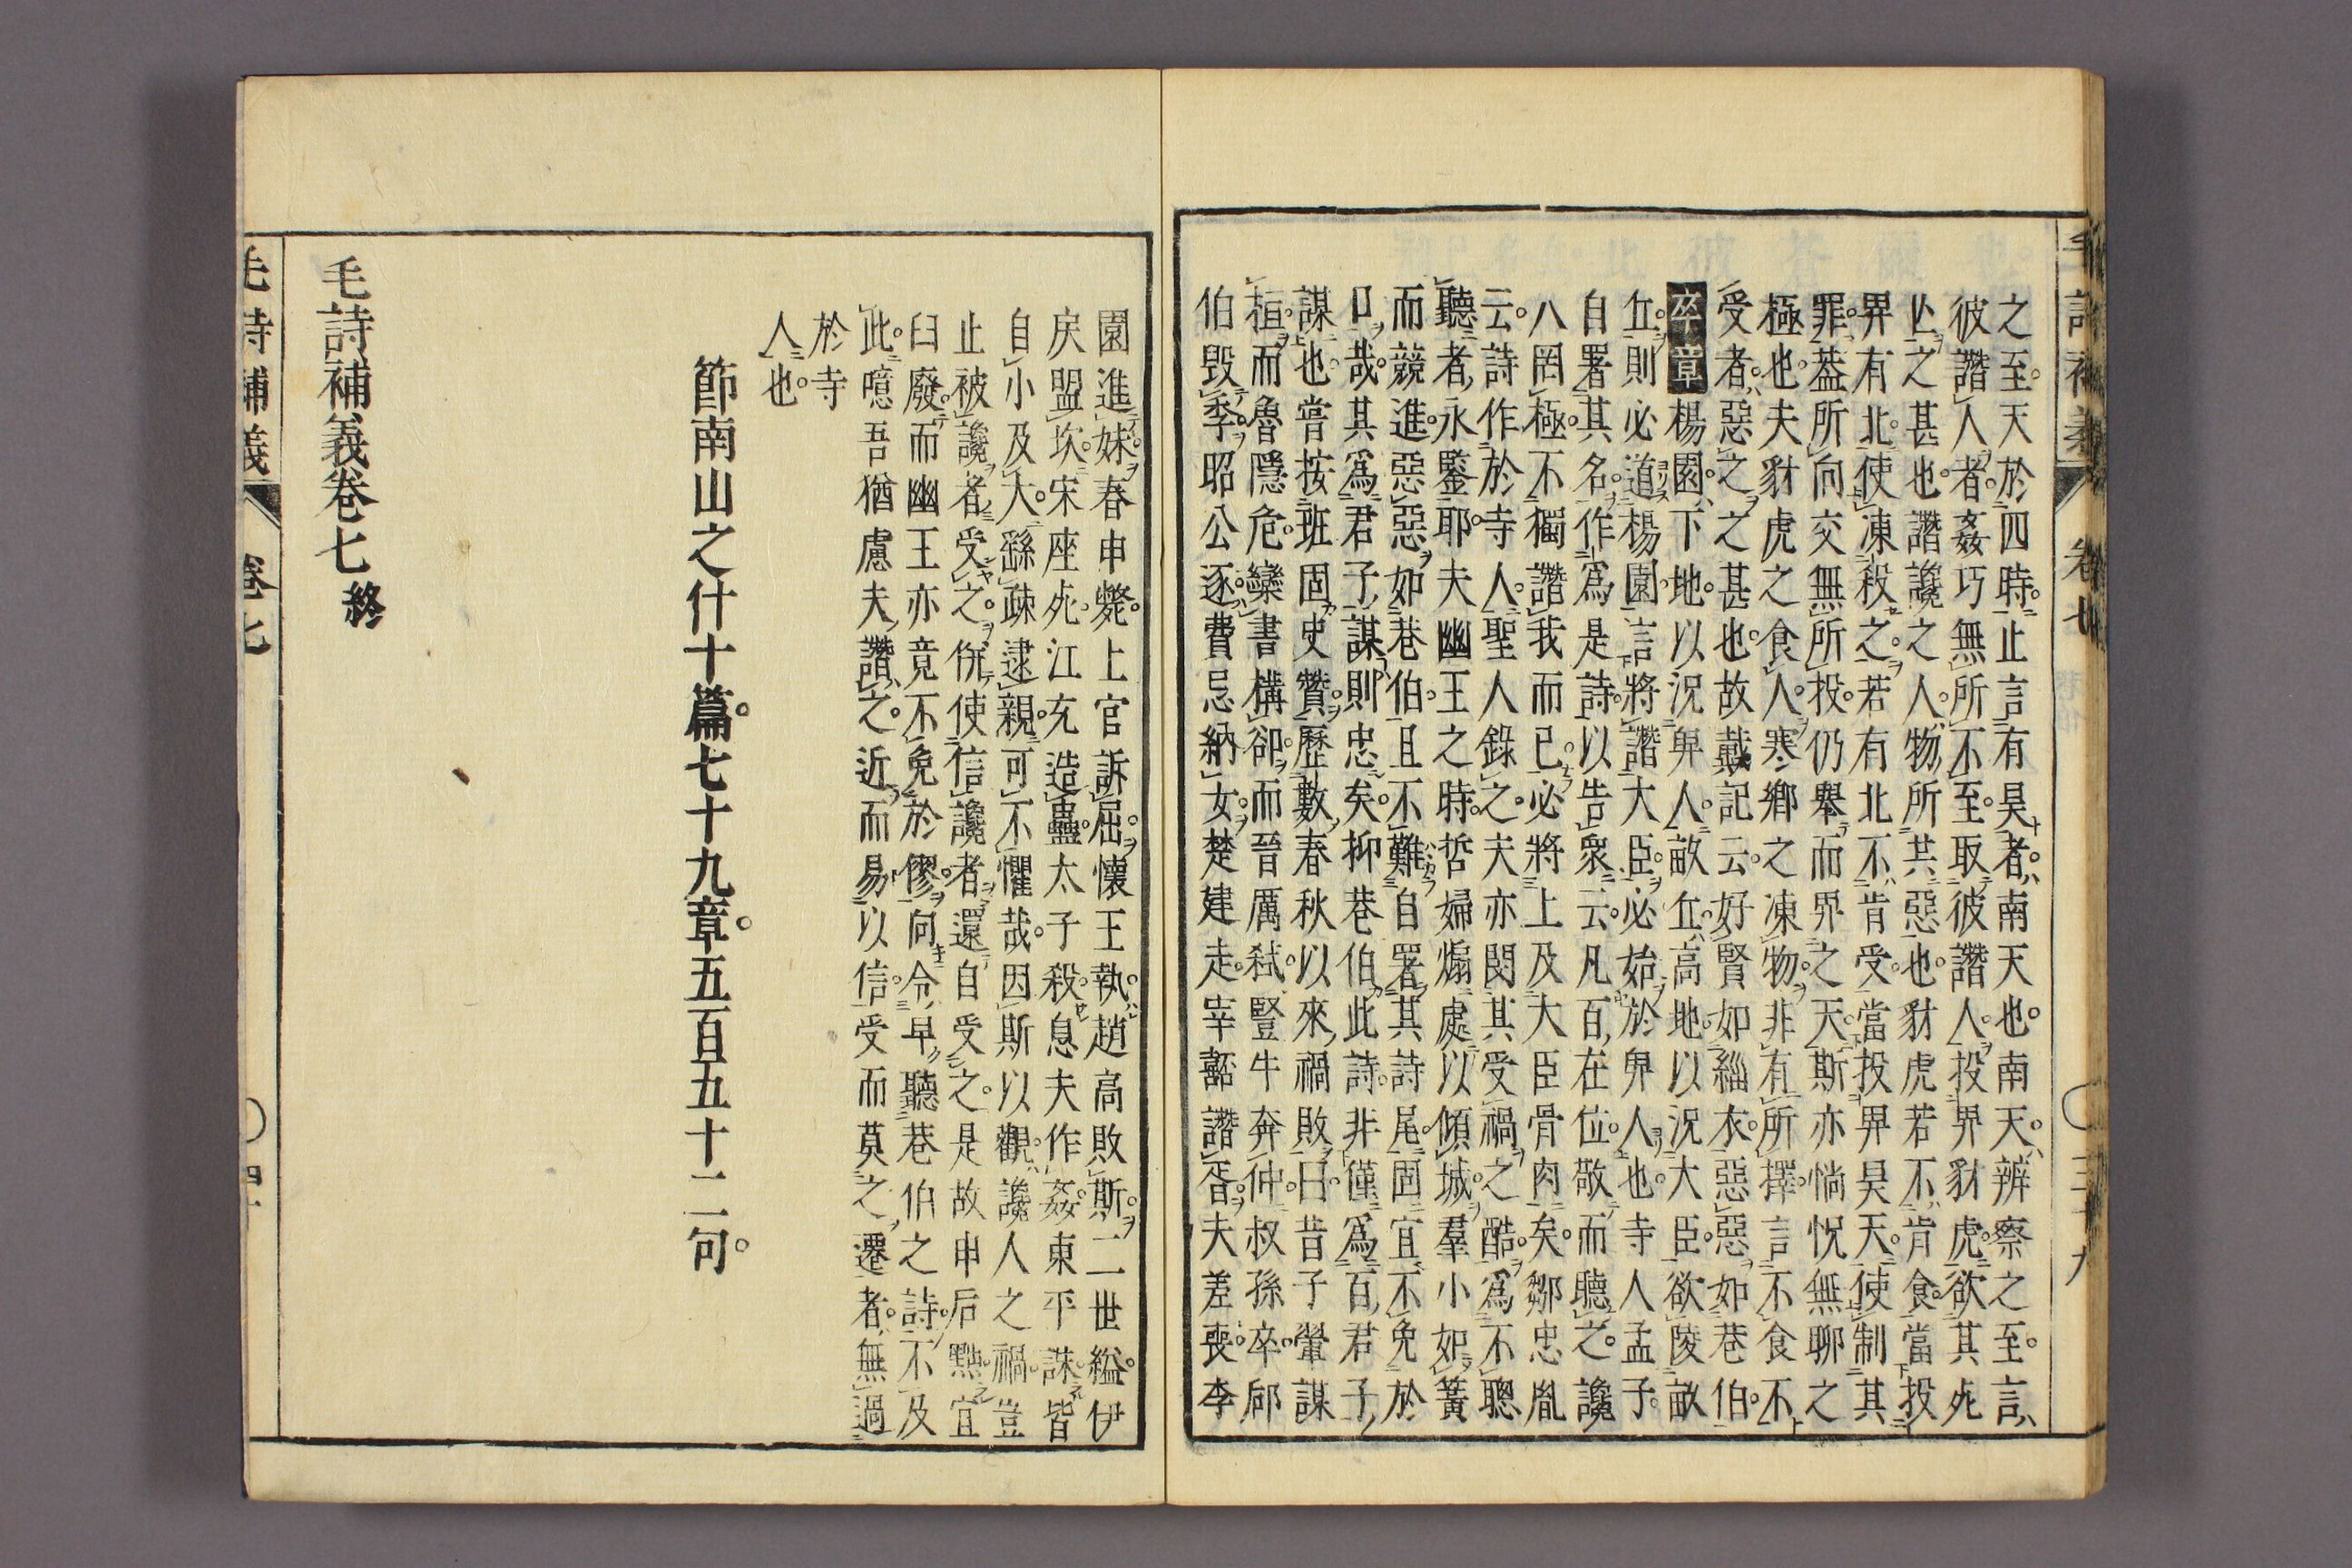 毛詩補義 卷七 三十九
之至天於四時止言有昊者南天也南天辨察之至言
彼譖人者姦巧無所不至取彼譖人投畀豺虎欲其死
亾之甚也譖讒之人物所共惡也豺虎若不肯食當投
畀有北使凍殺之若有北不肯受當投畀昊天使制其
罪葢所向交無所投仍舉而畀之天斯亦惝怳無聊之
極也夫豺虎之食人寒鄉之凍物非有所擇言不食不
受者惡之之甚也故戴記云好賢如緇衣惡惡如巷伯
卒章楊園下地以況卑人畝丠高地以況大臣欲陵畝
丠則必道楊園言將譖大臣必始於卑人也寺人孟子
自署其名作爲是詩以告衆云凡百在位敬而聽之讒
人罔極不獨譖我而已必將上及大臣骨肉矣鄒忠胤
云詩作於寺人聖人錄之夫亦閔其受禍之酷爲不聰
聽者永鑒耶夫幽王之時哲婦煽處以傾城羣小如簧
而競進惡惡如巷伯且不難自署其詩尾固宜不免於
口哉其爲君子謀則忠矣抑巷伯此詩非僅爲百君子
謀也嘗按班固史贊歷數春秋以來禍敗曰昔子翬謀
桓而魯隱危欒書構郤而晉厲弑豎牛奔仲叔孫卒郈
伯毀季昭公逐費忌納女楚建走宰嚭譖胥夫差喪李
園進妹春申斃上官訴屈懷王執趙高敗斯二世縊伊
戾盟坎宋座死江充造蠱太子殺息夫作姦東平誅皆
自小及大繇疎逮親可不懼哉因斯以觀讒人之禍豈
止被讒者受之併使信讒者還自受之是故申后黜宜
臼廢而幽王亦竟不免於僇向令早聽巷伯之詩不及
此噫吾猶慮夫譖之近而易以信受而莫之遷者無過
於寺
人也
節南山之什十篇七十九章五百五十二句
毛詩補義卷七終
毛詩補義 卷七 四十